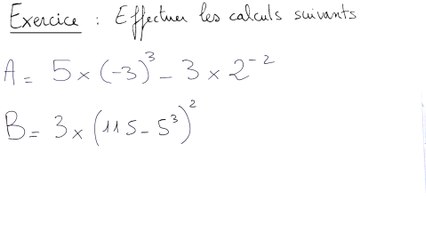 Exercice : Effectuer les calculs suivants
A = 5 × (-3)³ - 3 × 2⁻²
B = 3 × (115 - 5³)²